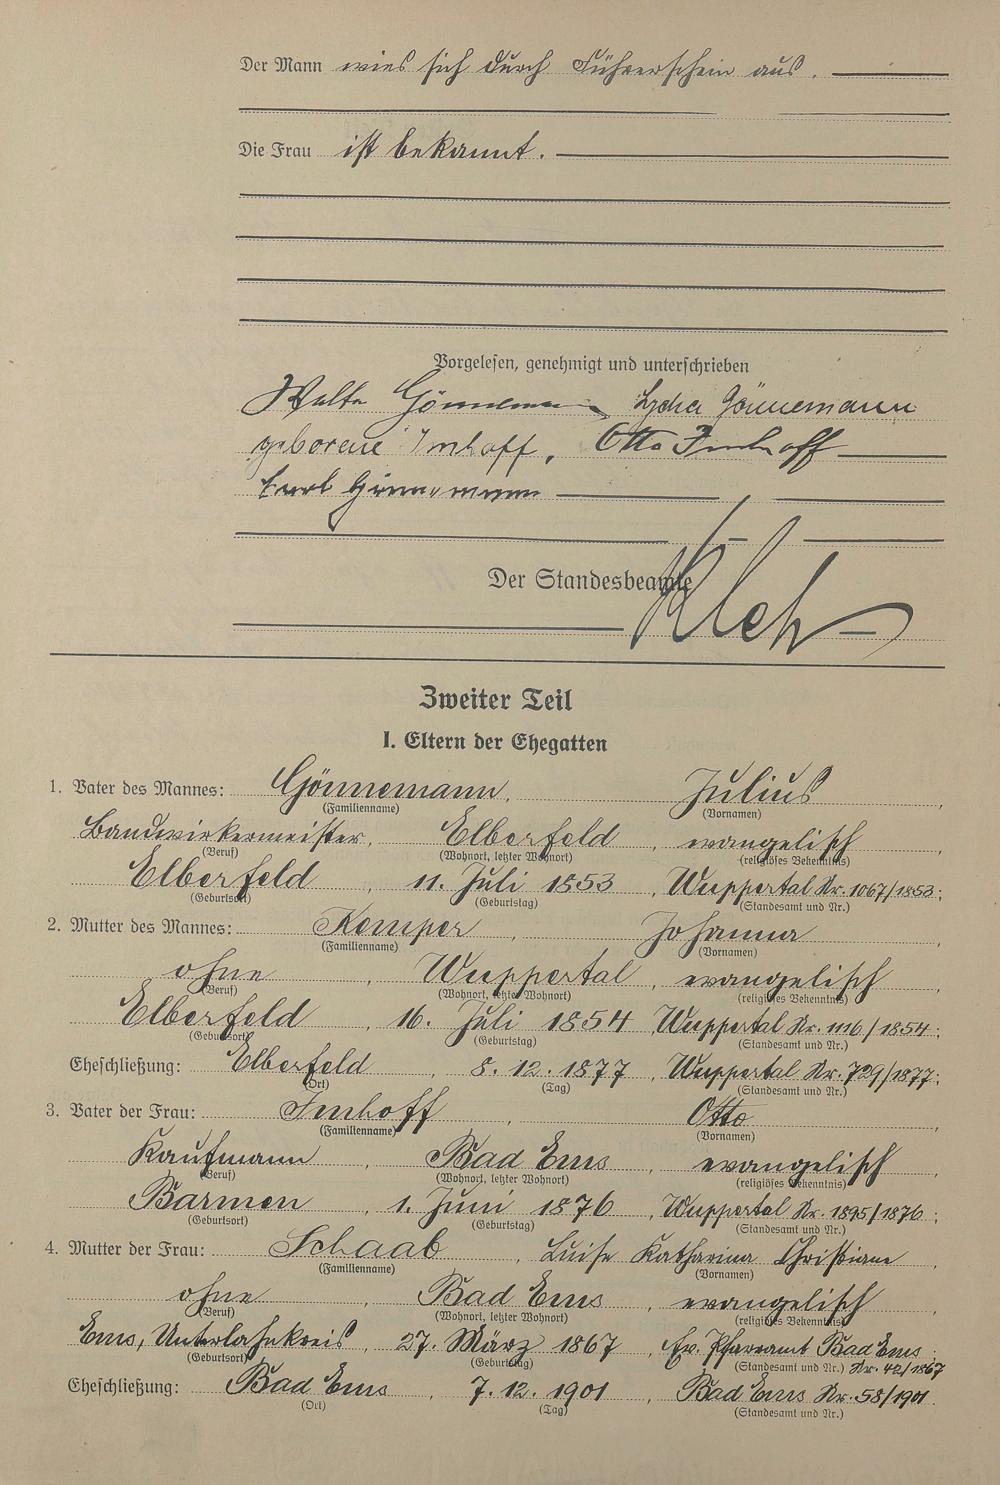 Der Mann wies sich durch Führerschein aus.
Die Frau ist bekannt.
Vorgelesen, genehmigt und unterschrieben
Walter Gönnemann Lydia Gönnemann
geborene Imhoff, Otto Imhoff
Carl Gönnemann
Der Standesbeamte
Zweiter Teil
I. Eltern der Ehegatten
1. Vater des Mannes: Gönnemann, Julius,
(Familienname) (Vornamen)
Bandwirkermeister, Elberfeld, evangelisch
(Beruf) (Wohnort, letzter Wohnort) (religiöses Bekenntnis)
Elberfeld, 11. Juli 1853, Wuppertal Nr. 1067/1853;
(Geburtsort) (Geburtstag) (Standesamt und Nr.)
2. Mutter des Mannes: Kemper, Johanna,
(Familienname) (Vornamen)
ohne, Wuppertal, evangelisch,
(Beruf) (Wohnort, letzter Wohnort) (religiöses Bekenntnis)
Elberfeld, 16. Juli 1854 Wuppertal Nr. 1116/1854;
(Geburtsort) (Geburtstag) (Standesamt und Nr.)
Eheschließung: Elberfeld, 8. 12. 1877, Wuppertal Nr. 729/1877;
(Ort) (Tag) (Standesamt und Nr.)
3. Vater der Frau: Imhoff, Otto,
(Familienname) (Vornamen)
Kaufmann, Bad Ems, evangelisch,
(Beruf) (Wohnort, letzter Wohnort) (religiöses Bekenntnis)
Barmen, 1. Juni 1876, Wuppertal Nr. 1895/1876;
(Geburtsort) (Geburtstag) (Standesamt und Nr.)
4. Mutter der Frau: Schaab, Luise Katharina Christiane,
(Familienname) (Vornamen)
ohne, Bad Ems, evangelisch,
(Beruf) (Wohnort, letzter Wohnort) (religiöses Bekenntnis)
Ems, Unterlahnkreis, 27. März 1867, Ev. Pfarramt Bad Ems;
(Geburtsort) (Geburtstag) (Standesamt und Nr.) Nr. 42/1867
Eheschließung: Bad Ems, 7. 12. 1901, Bad Ems Nr. 58/1901.
(Ort) (Tag) (Standesamt und Nr.)